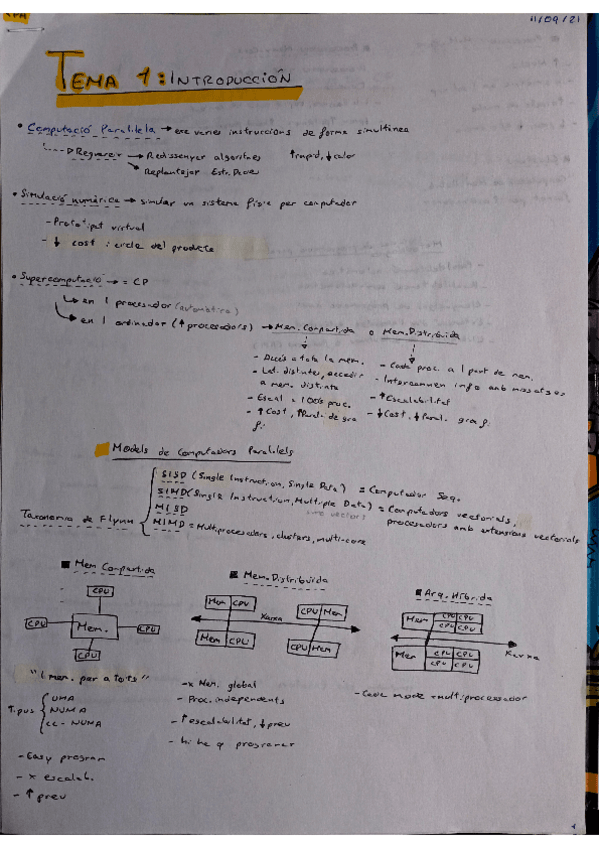 CPA
11/09/21
TEMA 1: INTRODUCCIÓN
• Computació Paralilela → exe varies instruccions de forma simultínea
Requereix → Redissenyar algorismes ↑rapid, ↓calor
→ Replantejar Estr. Dades
• Simulació numèrica → simular un sistema físic per computador
- Prototipat virtual
- ↓ cost i cicle del producte
• Supercomputació → = CP
↳ en 1 processador (automàtica)
↳ en 1 ordinador (↑processadors) → Mem. Compartida o Mem. Distribuida
- Accés a tota la mem.
- Lat. distintes, accedir
a mem. distinta
- Escal = 100s proc.
- ↑ Cost, ↑Paral. de gra
fi.
- Cada proc. a 1 part de mem.
- Intercanvien info amb missatges
- ↑Escalabilitat
- ↓Cost, ↓Paral. gra fi.
Models de Computadors Paralilels
Taxonomia de Flynn
SISD (Single Instruction, Single Data) = Computador Seq.
SIMD (Single Instruction, Multiple Data) = Computadors vectorials,
processadors amb extensions vectorials
MISD
MIMD = Multiprocesadors, clusters, multi-core
■ Mem Compartida
CPU
CPU Mem. CPU
CPU
"1 mem. per a tots"
Tipus { UMA
NUMA
cc-NUMA
- Easy program
- x escalab.
- ↑ preu
■ Mem. Distribuida
Mem CPU CPU Mem
Xarxa
Mem CPU CPU Mem
- x Mem. global
- Proc. independents
- ↑ escalabilitat, ↓ preu
- hi ha q programar
■ Arq. Híbrida
Mem CPU CPU
CPU CPU
Xarxa
Mem CPU CPU
CPU CPU
- Cada node = multiprocessador